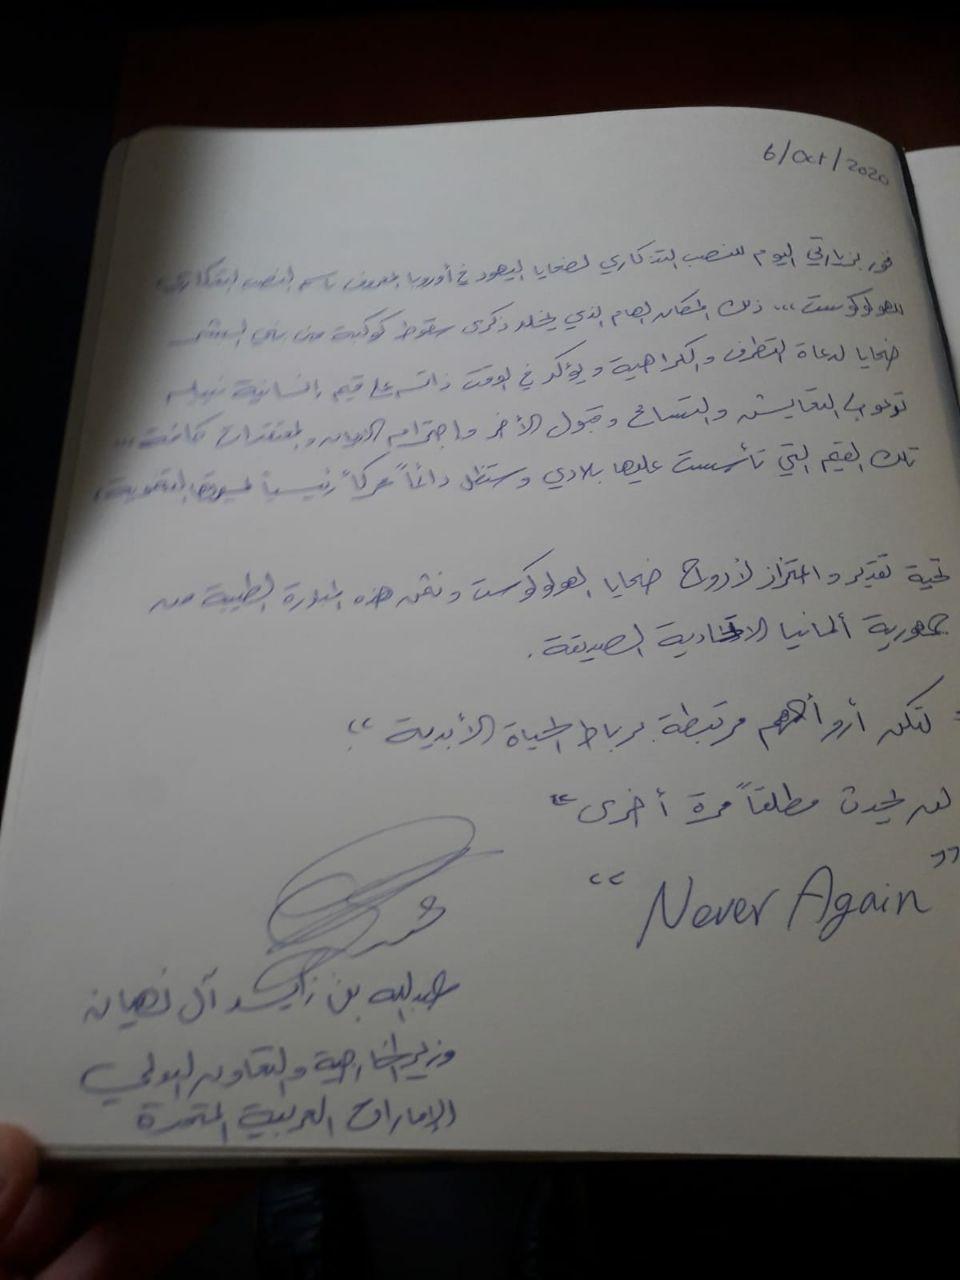 6/Oct/2020
فخور بزيارتي اليوم للنصب التذكاري لضحايا اليهود في أوروبا المعروف باسم النصب التذكاري
للهولوكوست... ذلك المكان الهام الذي يخلد ذكرى سقوط كوكبة من بني البشر
ضحايا لدعاة التطرف والكراهية ويؤكد في الوقت ذاته على قيم إنسانية نبيلة
توعو الى التعايش والتسامح وقبول الأخر واحترام الاديان والمعتقدات كافة...
تلك القيم التي تأسست عليها بلادي وستظل دائماً محركاً رئيسياً لمسيرتها التنموية.
تحية تقدير واعتزاز لأرواح ضحايا الهولوكوست ونثمن هذه المبادرة الطيبة من
جمهورية ألمانيا الاتحادية الصديقة.
لتكن أرواحهم مرتبطة برباط الحياة الأبدية"
لن يحدث مطلقاً مرة أخرى"
"Never Again"
عبدالله بن زايد آل نهيان
وزير الخارجية والتعاون الدولي
الإمارات العربية المتحدة